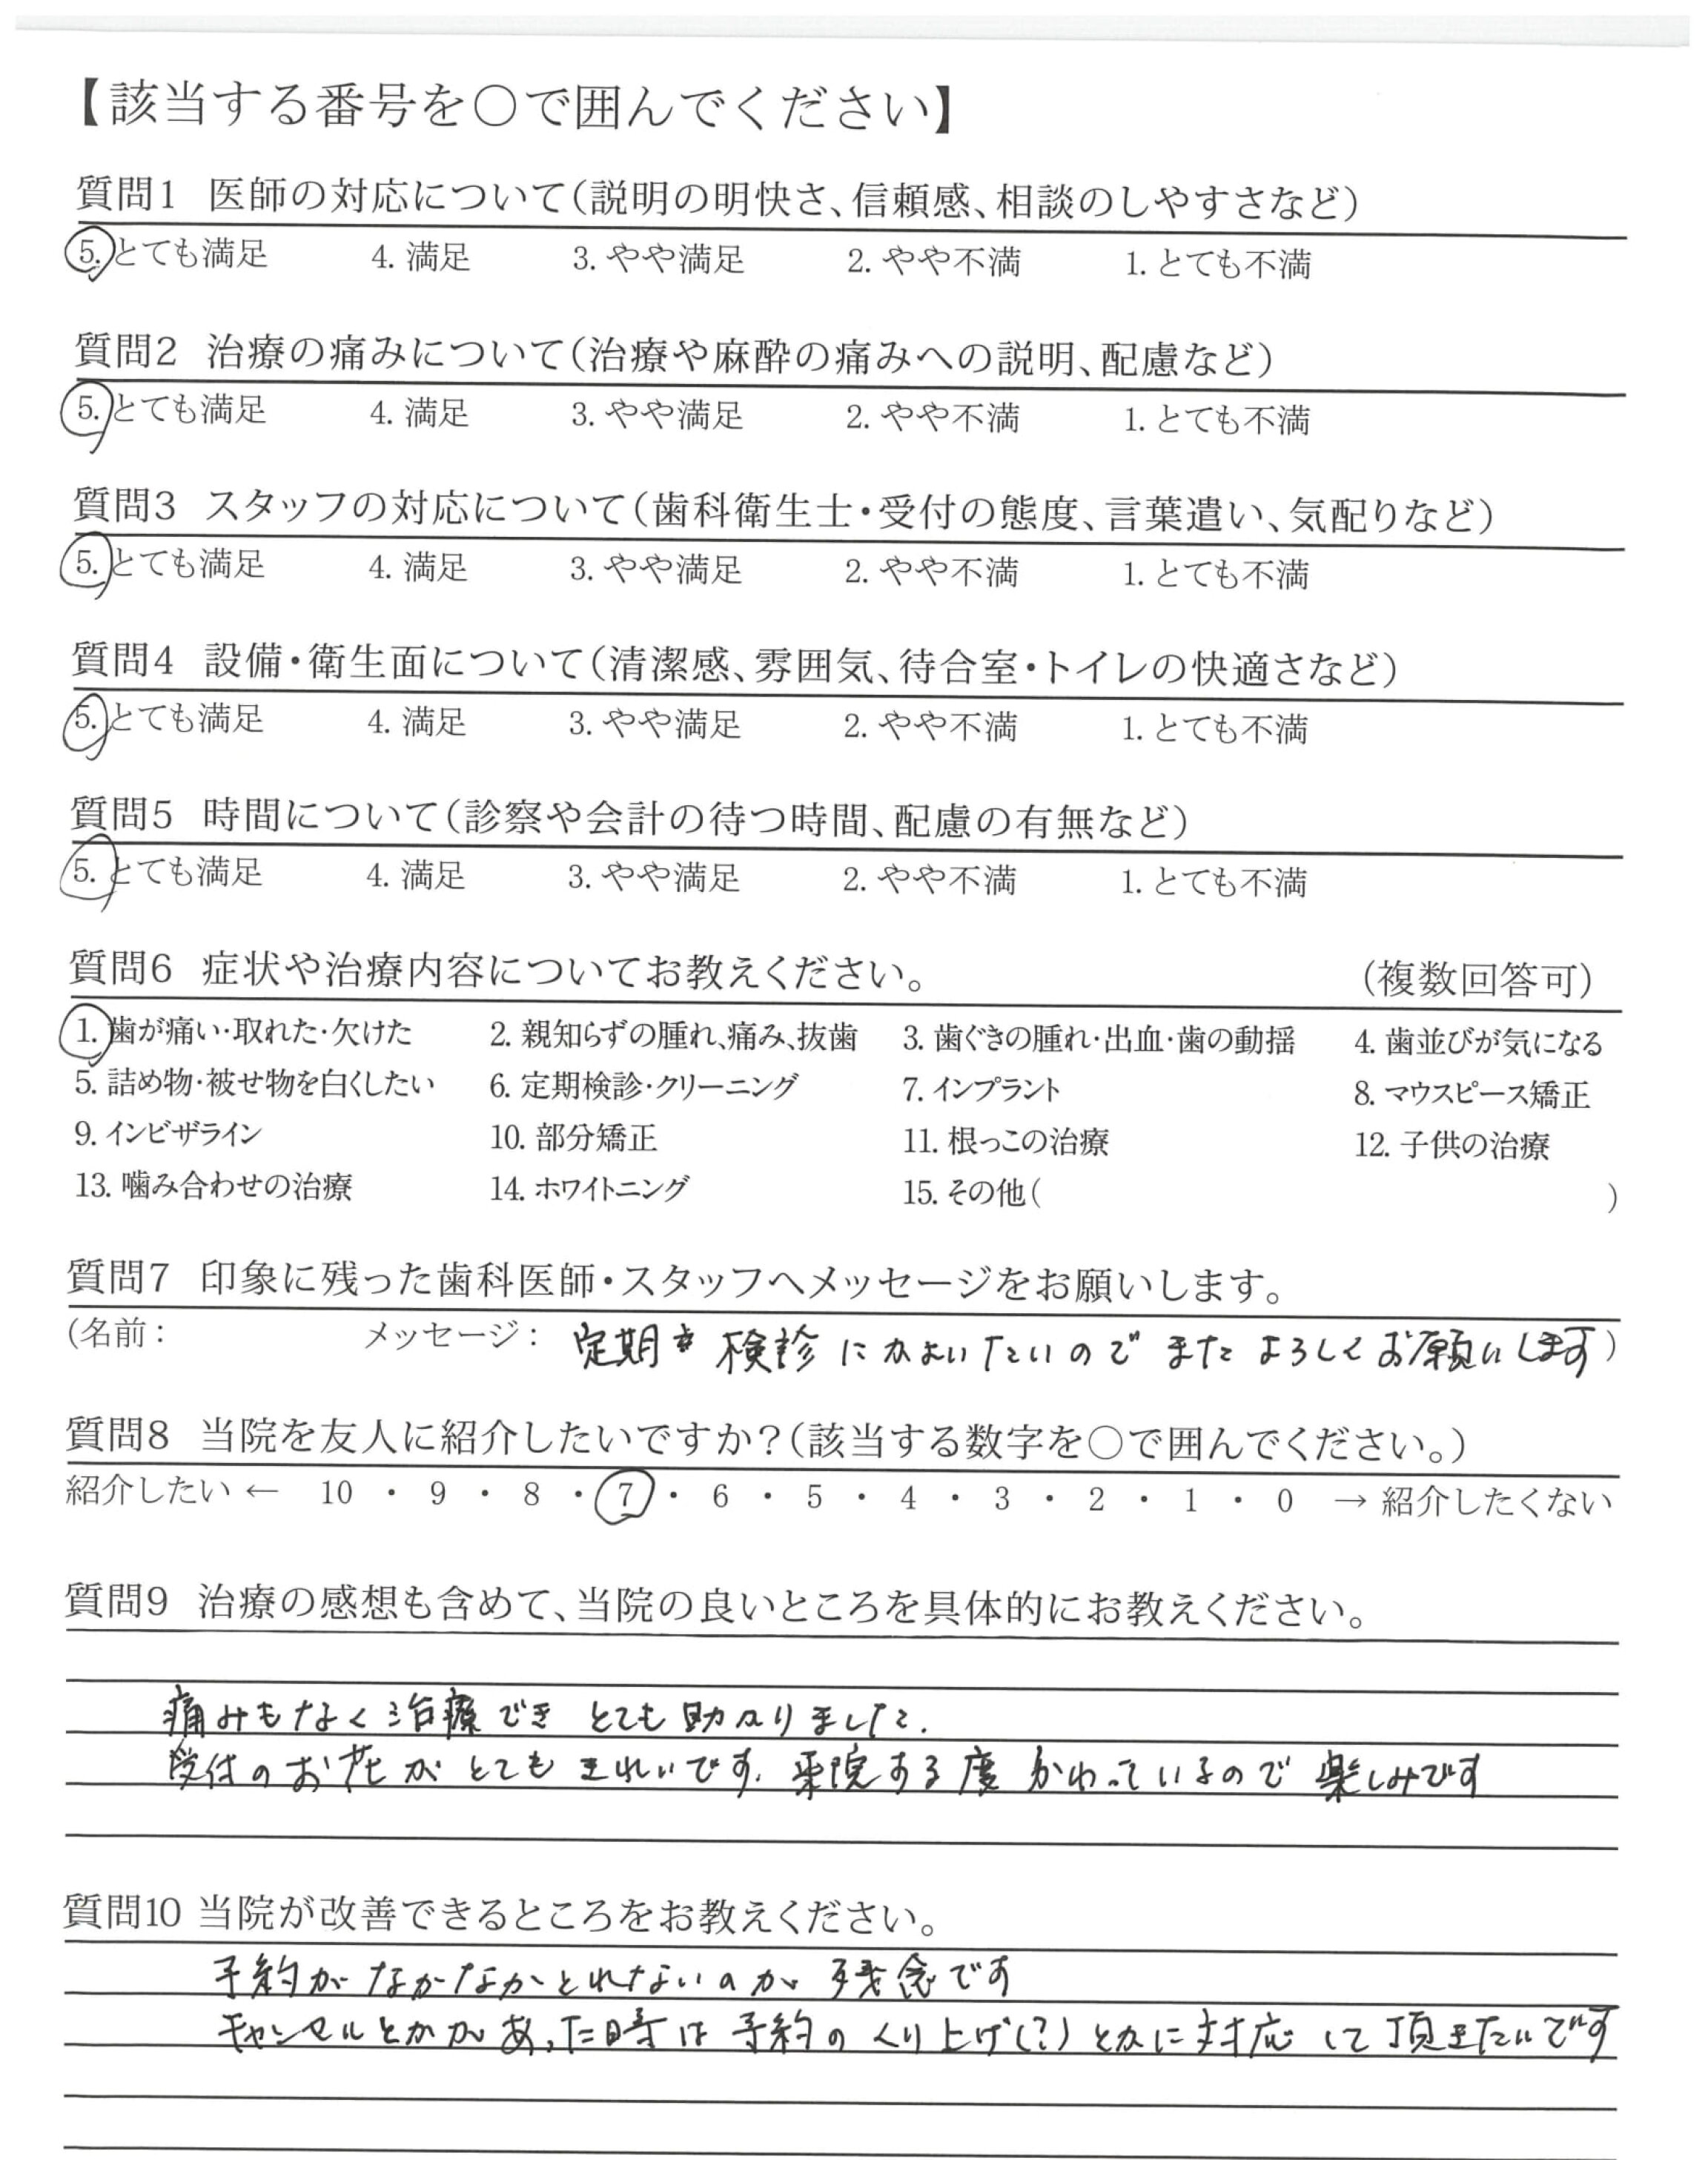 【該当する番号を〇で囲んでください】
質問1 医師の対応について(説明の明快さ、信頼感、相談のしやすさなど)
5. とても満足 4. 満足 3. やや満足 2. やや不満 1. とても不満
質問2 治療の痛みについて(治療や麻酔の痛みへの説明、配慮など)
5. とても満足 4. 満足 3. やや満足 2. やや不満 1. とても不満
質問3 スタッフの対応について(歯科衛生士・受付の態度、言葉遣い、気配りなど)
5. とても満足 4. 満足 3. やや満足 2. やや不満 1. とても不満
質問4 設備・衛生面について(清潔感、雰囲気、待合室・トイレの快適さなど)
5. とても満足 4. 満足 3. やや満足 2. やや不満 1. とても不満
質問5 時間について(診察や会計の待つ時間、配慮の有無など)
5. とても満足 4. 満足 3. やや満足 2. やや不満 1. とても不満
質問6 症状や治療内容についてお教えください。 (複数回答可)
1. 歯が痛い・取れた・欠けた 2. 親知らずの腫れ、痛み、抜歯 3. 歯ぐきの腫れ・出血・歯の動揺 4. 歯並びが気になる
5. 詰め物・被せ物を白くしたい 6. 定期検診・クリーニング 7. インプラント 8. マウスピース矯正
9. インビザライン 10. 部分矯正 11. 根っこの治療 12. 子供の治療
13. 噛み合わせの治療 14. ホワイトニング 15. その他( )
質問7 印象に残った歯科医師・スタッフへメッセージをお願いします。
(名前: メッセージ: 定期 検診 にかよいたいので またよろしくお願いします)
質問8 当院を友人に紹介したいですか?(該当する数字を〇で囲んでください。)
紹介したい ← 10 ・ 9 ・ 8 ・ 7 ・ 6 ・ 5 ・ 4 ・ 3 ・ 2 ・ 1 ・ 0 → 紹介したくない
質問9 治療の感想も含めて、当院の良いところを具体的にお教えください。
痛みもなく治療でき とても助かりました.
受付のお花がとてもきれいです. 来院する度 かわっているので 楽しみです
質問10 当院が改善できるところをお教えください。
予約がなかなかとれないのが 残念です
キャンセルとかがあった時は 予約のくり上げ(?)とかに対応して頂きたいです